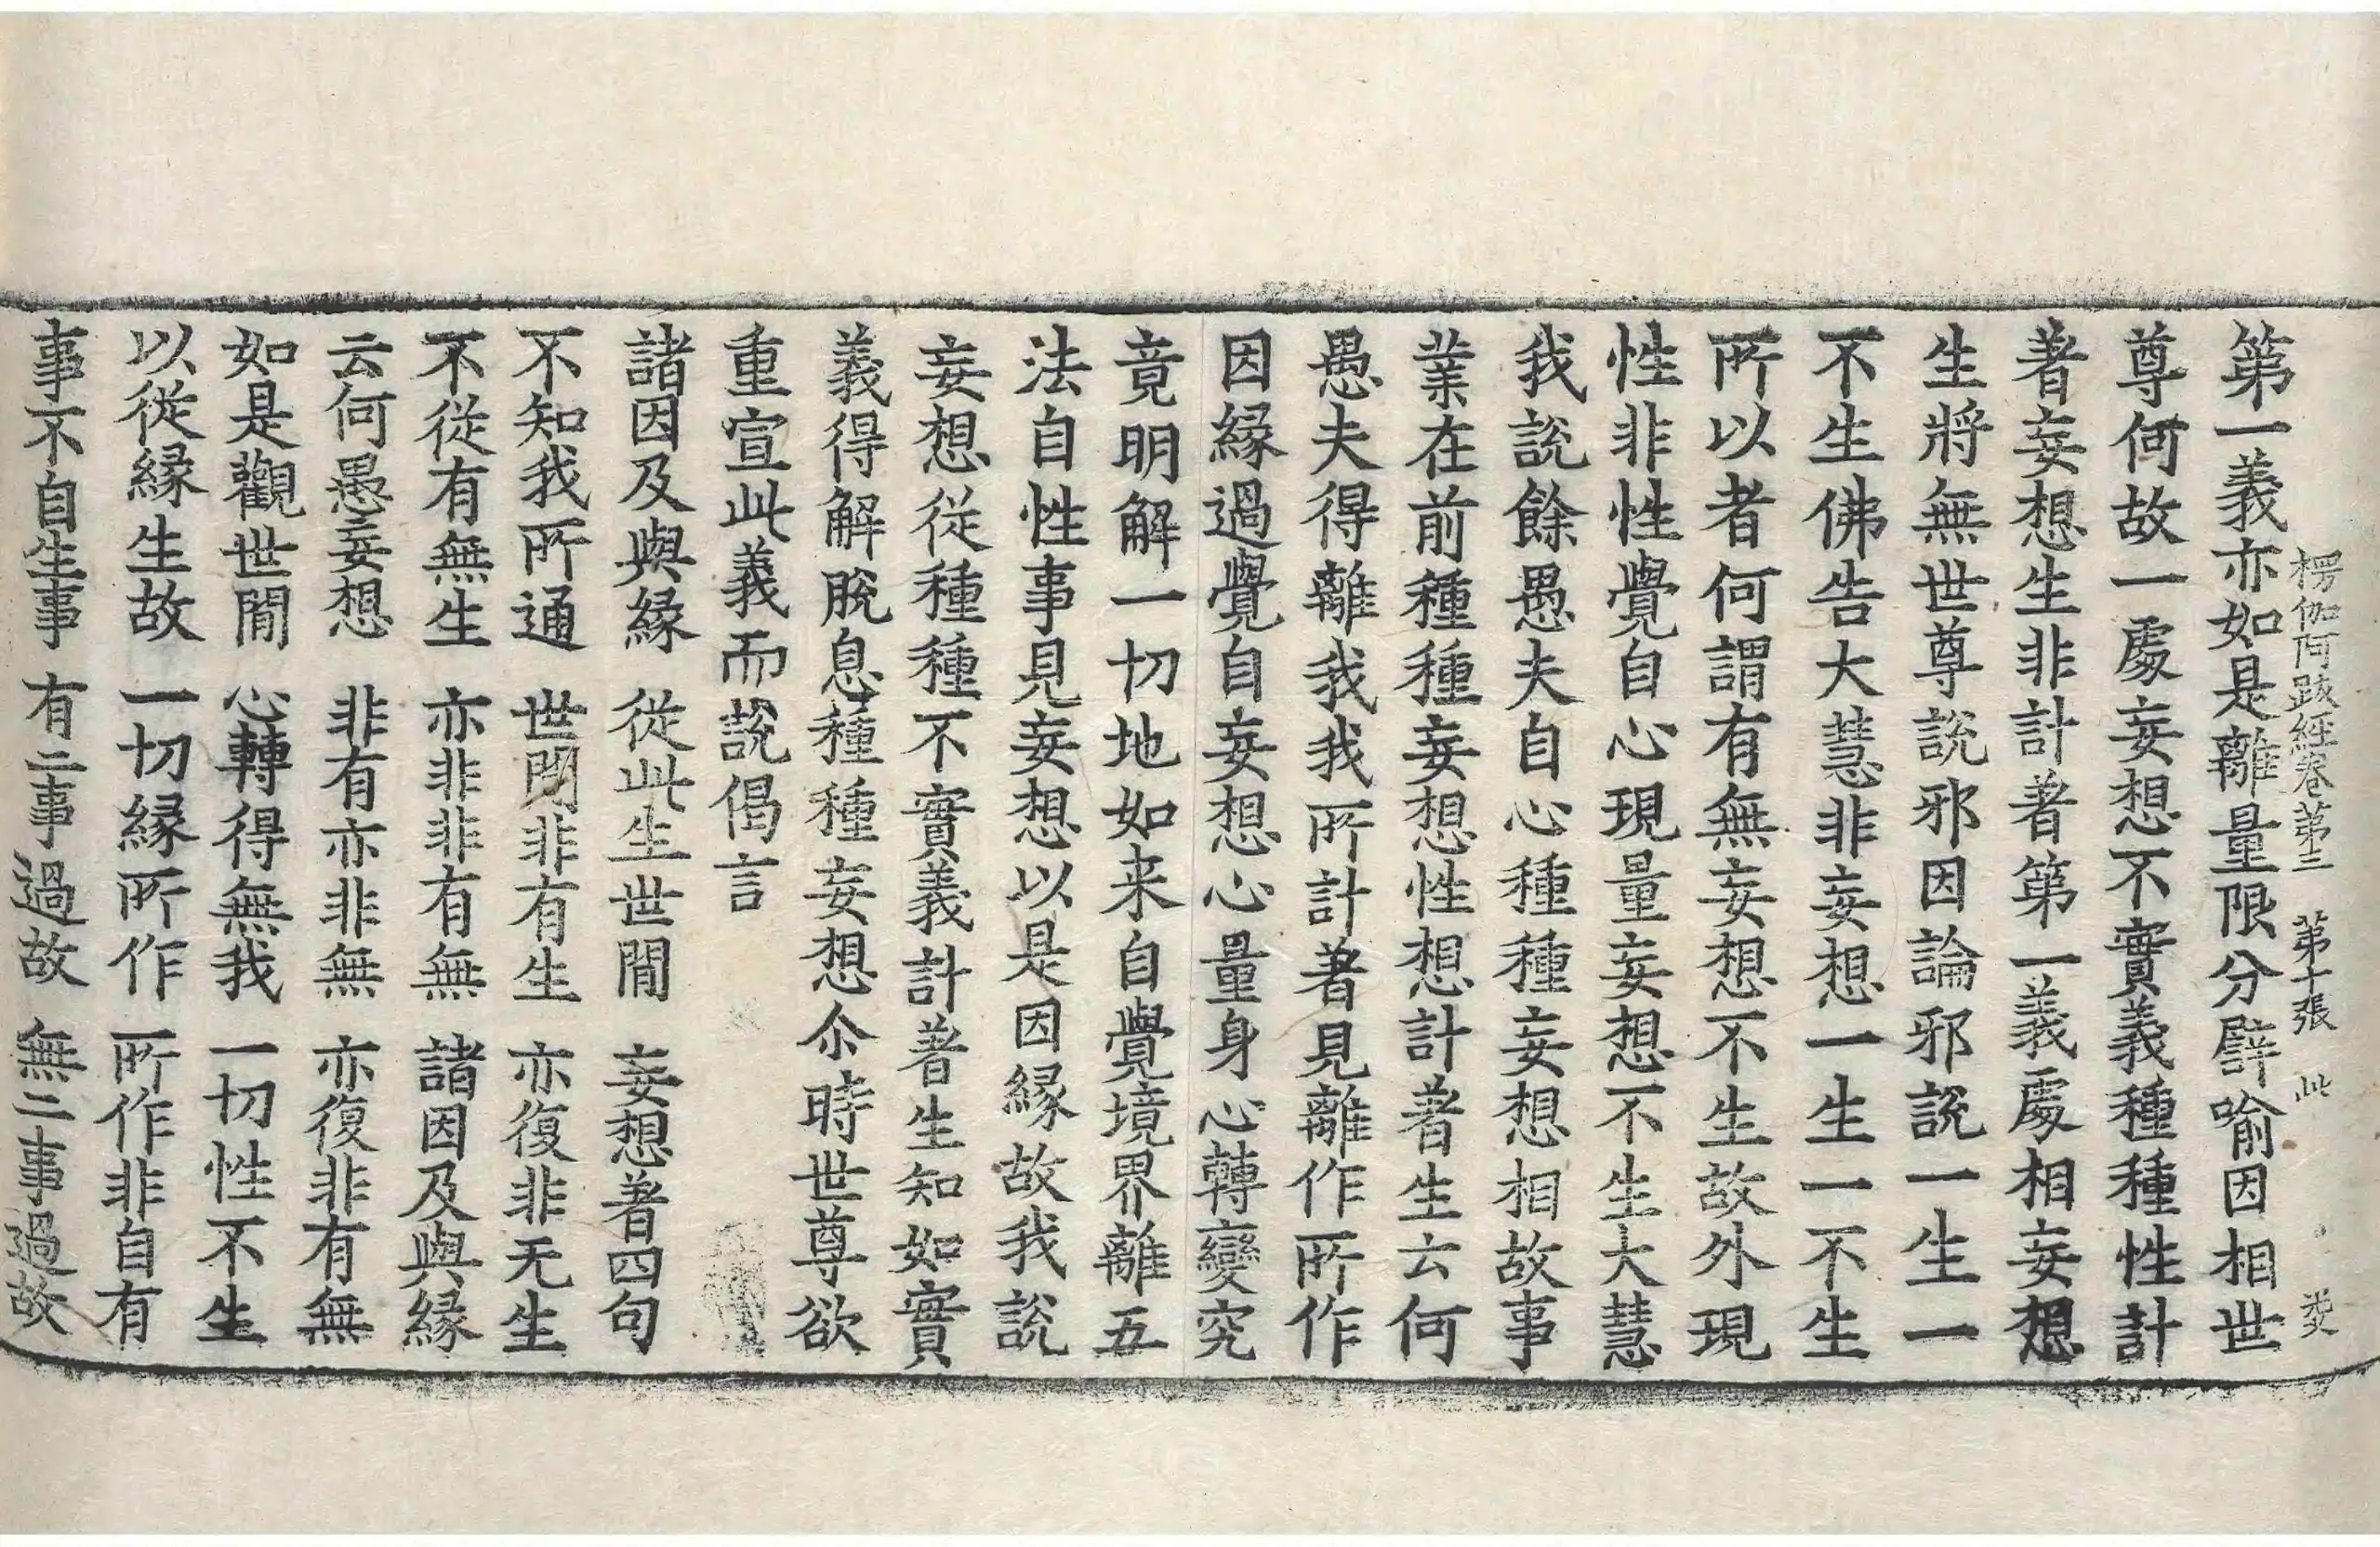 楞伽阿跋經卷第三　第十張　此
第一義亦如是離量限分譬喻因相世
尊何故一處妄想不實義種種性計
著妄想生非計著第一義處相妄想
生將無世尊說邪因論邪說一生一
不生佛告大慧非妄想一生一不生
所以者何謂有無妄想不生故外現
性非性覺自心現量妄想不生大慧
我說餘愚夫自心種種妄想相故事
業在前種種妄想性想計著生云何
愚夫得離我我所計著見離作所作
因緣過覺自妄想心量身心轉變究
竟明解一切地如来自覺境界離五
法自性事見妄想以是因緣故我說
妄想從種種不實義計著生知如實
義得解脫息種種妄想尒時世尊欲
重宣此義而說偈言
諸因及與緣　從此生世間　妄想著四句
不知我所通　世間非有生　亦復非无生
不從有無生　亦非非有無　諸因及與緣
云何愚妄想　非有亦非無　亦復非有無
如是觀世間　心轉得無我　一切性不生
以從緣生故　一切緣所作　所作非自有
事不自生事　有二事過故　無二事過故